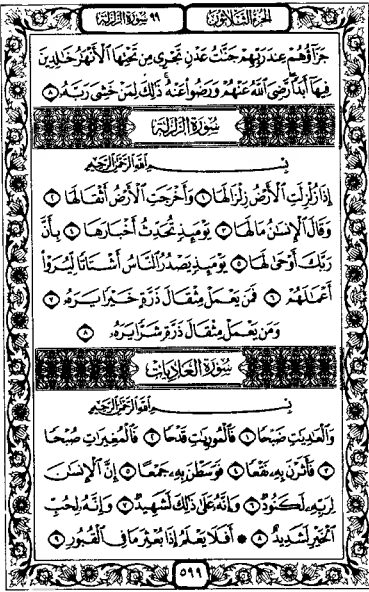 الجزء الثلاثون
٩٩ سورة الزلزلة
جَزَآؤُهُمْ عِندَ رَبِّهِمْ جَنَّٰتُ عَدْنٍ تَجْرِى مِن تَحْتِهَا ٱلْأَنْهَٰرُ خَٰلِدِينَ
فِيهَآ أَبَدًا رَّضِىَ ٱللَّهُ عَنْهُمْ وَرَضُوا۟ عَنْهُ ذَٰلِكَ لِمَنْ خَشِىَ رَبَّهُۥ ٨
سورة الزلزلة
بِسْمِ ٱللَّهِ ٱلرَّحْمَٰنِ ٱلرَّحِيمِ
إِذَا زُلْزِلَتِ ٱلْأَرْضُ زِلْزَالَهَا ١ وَأَخْرَجَتِ ٱلْأَرْضُ أَثْقَالَهَا ٢
وَقَالَ ٱلْإِنسَٰنُ مَا لَهَا ٣ يَوْمَئِذٍ تُحَدِّثُ أَخْبَارَهَا ٤ بِأَنَّ
رَبَّكَ أَوْحَىٰ لَهَا ٥ يَوْمَئِذٍ يَصْدُرُ ٱلنَّاسُ أَشْتَاتًا لِّيُرَوْا۟
أَعْمَٰلَهُمْ ٦ فَمَن يَعْمَلْ مِثْقَالَ ذَرَّةٍ خَيْرًا يَرَهُۥ ٧
وَمَن يَعْمَلْ مِثْقَالَ ذَرَّةٍ شَرًّا يَرَهُۥ ٨
سورة العاديات
بِسْمِ ٱللَّهِ ٱلرَّحْمَٰنِ ٱلرَّحِيمِ
وَٱلْعَٰدِيَٰتِ ضَبْحًا ١ فَٱلْمُورِيَٰتِ قَدْحًا ٢ فَٱلْمُغِيرَٰتِ صُبْحًا
٣ فَأَثَرْنَ بِهِۦ نَقْعًا ٤ فَوَسَطْنَ بِهِۦ جَمْعًا ٥ إِنَّ ٱلْإِنسَٰنَ
لِرَبِّهِۦ لَكَنُودٌ ٦ وَإِنَّهُۥ عَلَىٰ ذَٰلِكَ لَشَهِيدٌ ٧ وَإِنَّهُۥ لِحُبِّ
ٱلْخَيْرِ لَشَدِيدٌ ٨ ۞ أَفَلَا يَعْلَمُ إِذَا بُعْثِرَ مَا فِى ٱلْقُبُورِ ٩
٥٩٩